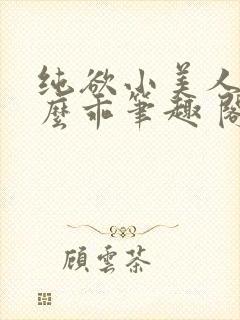 纯欲小美人
麼乖筆趣阁
顧雲茶